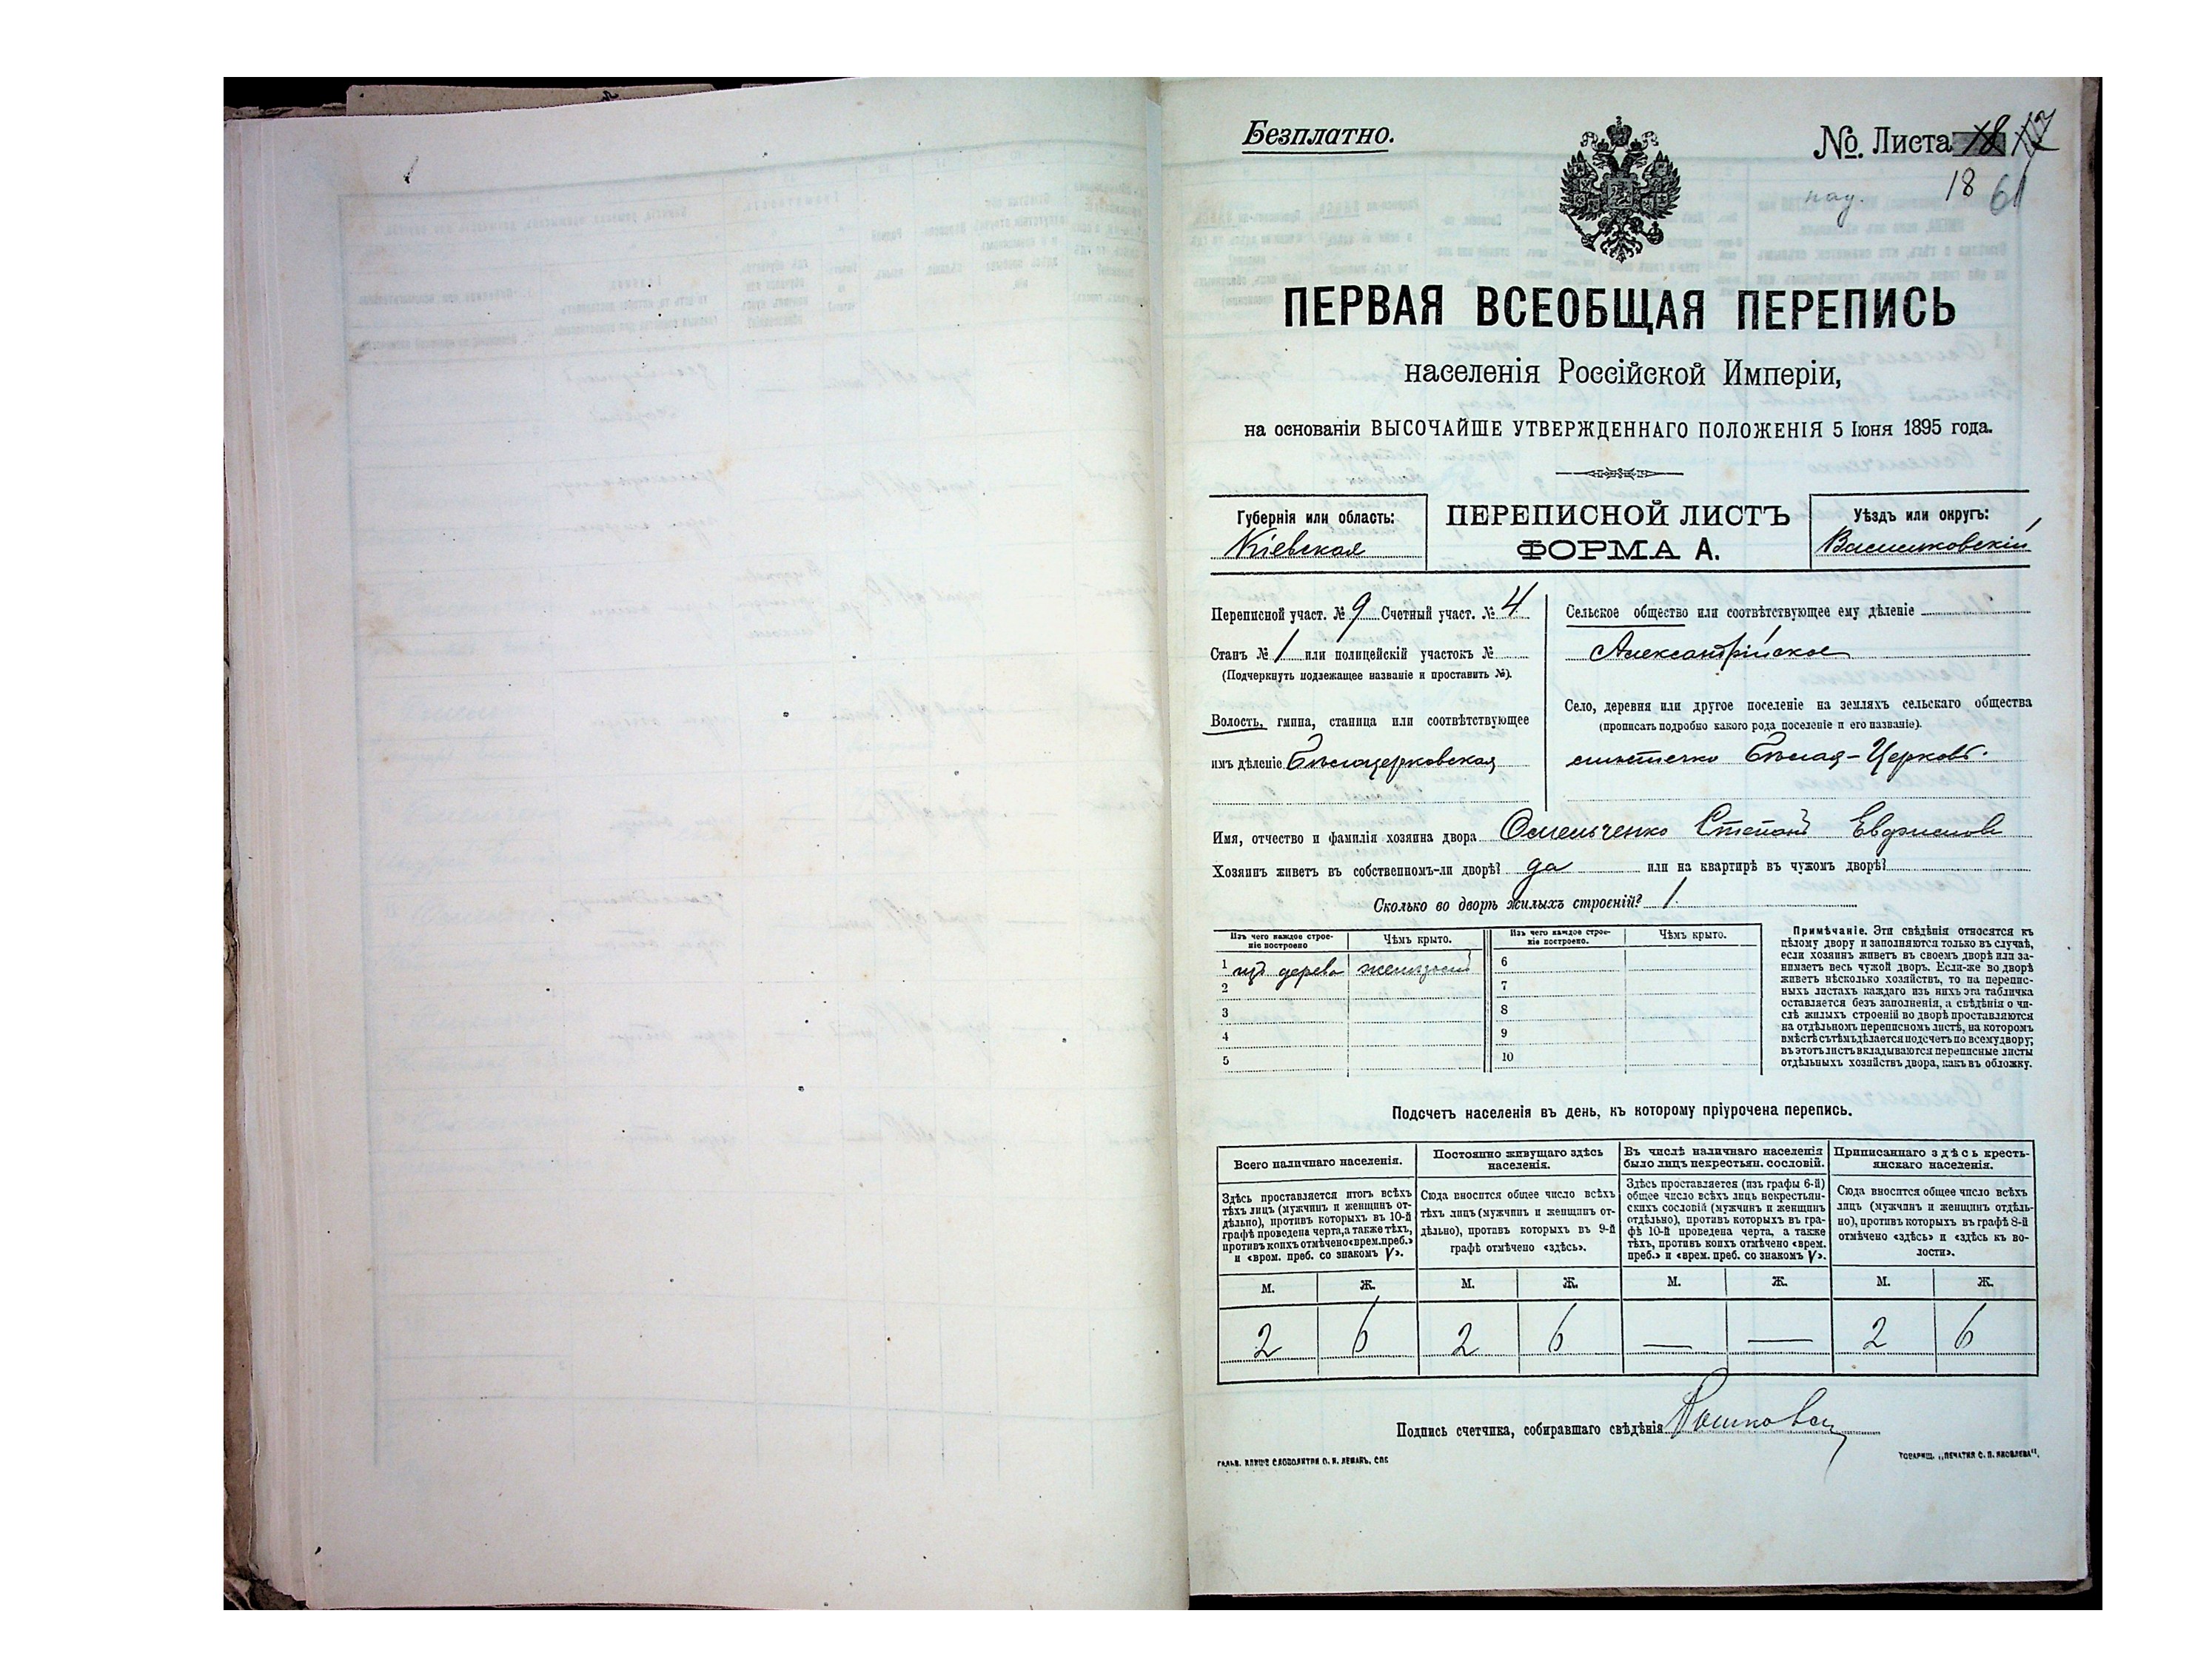 Безплатно.
№. Листа 18 17
18 61
ПЕРВАЯ ВСЕОБЩАЯ ПЕРЕПИСЬ
населенія Россійской Имперіи,
на основаніи ВЫСОЧАЙШЕ УТВЕРЖДЕННАГО ПОЛОЖЕНІЯ 5 Іюня 1895 года.
Губернія или область:
Кіевская
ПЕРЕПИСНОЙ ЛИСТЪ
ФОРМА А.
Уѣздъ или округъ:
Васильковскій
Переписной участ. № 9 Счетный участ. № 4
Станъ № 1 или полицейскій участокъ №
(Подчеркнуть подлежащее названіе и проставить №).
Волость, гмина, станица или соотвѣтствующее
имъ дѣленіе Бѣлоцерковская
Сельское общество или соотвѣтствующее ему дѣленіе
Александрійское
Село, деревня или другое поселеніе на земляхъ сельскаго общества
(прописать подробно какого рода поселеніе и его названіе).
мѣстечко Бѣлая-Церковь.
Имя, отчество и фамилія хозяина двора Омельченко Степанъ
Хозяинъ живетъ въ собственномъ-ли дворѣ? да или на квартирѣ въ чужомъ дворѣ?
Сколько во дворѣ жилыхъ строеній? 1.
Изъ чего каждое строе-
ніе построено
Чѣмъ крыто.
Изъ чего каждое строе-
ніе построено.
Чѣмъ крыто.
1 изъ дерева 6
2 7
3 8
4 9
5 10
Примѣчаніе. Эти свѣдѣнія относятся къ
цѣлому двору и заполняются только въ случаѣ,
если хозяинъ живетъ въ своемъ дворѣ или за-
нимаетъ весь чужой дворъ. Если-же во дворѣ
живетъ нѣсколько хозяйствъ, то на перепис-
ныхъ листахъ каждаго изъ нихъ эта табличка
оставляется безъ заполненія, а свѣдѣнія о чи-
слѣ жилыхъ строеній во дворѣ проставляются
на отдѣльномъ переписномъ листѣ, на которомъ
вмѣстѣ съ тѣмъ дѣлается подсчетъ по всему двору;
въ этотъ листъ вкладываются переписные листы
отдѣльныхъ хозяйствъ двора, какъ въ обложку.
Подсчетъ населенія въ день, къ которому пріурочена перепись.
Всего наличнаго населенія.
Здѣсь проставляется итогъ всѣхъ
тѣхъ лицъ (мужчинъ и женщинъ от-
дѣльно), противъ которыхъ въ 10-й
графѣ проведена черта, а также тѣхъ,
противъ коихъ отмѣчено «врем. преб.»
и «врем. преб. со знакомъ V».
Постоянно живущаго здѣсь
населенія.
Сюда вносится общее число всѣхъ
тѣхъ лицъ (мужчинъ и женщинъ от-
дѣльно), противъ которыхъ въ 9-й
графѣ отмѣчено «здѣсь».
Въ числѣ наличнаго населенія
было лицъ некрестьян. сословій.
Здѣсь проставляется (изъ графы 6-й)
общее число всѣхъ лицъ некрестьян-
скихъ сословій (мужчинъ и женщинъ
отдѣльно), противъ которыхъ въ гра-
фѣ 10-й проведена черта, а также
тѣхъ, противъ коихъ отмѣчено «врем.
преб.» и «врем. преб. со знакомъ V».
Приписаннаго здѣсь кресть-
янскаго населенія.
Сюда вносится общее число всѣхъ
лицъ (мужчинъ и женщинъ отдѣль-
но), противъ которыхъ въ графѣ 8-й
отмѣчено «здѣсь» и «здѣсь къ во-
лости».
М. Ж. М. Ж. М. Ж. М. Ж.
2 6 2 6 — — 2 6
Подпись счетчика, собиравшаго свѣдѣнія
ТОВАРИЩ. „ПЕЧАТНЯ С. П. ЯКОВЛЕВА“.